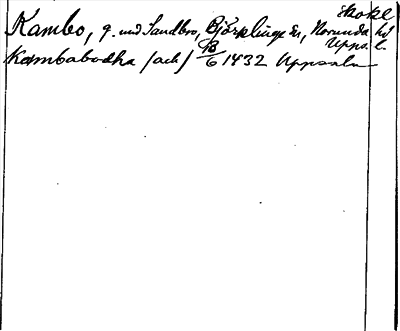 Skokl
Kambo, g. vid Sandbro, Björklinge sn, Norunda hd
Upps. l.
Kambabodha (ack) 13/6 1432 Uppsala